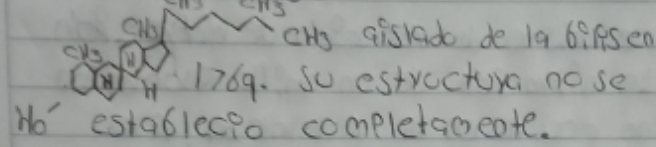 CH3 CH3
CH3 CH3 aislado de la bilis en
CH3 H H H 1769. Su estructura no se
Ho establecio completamente.